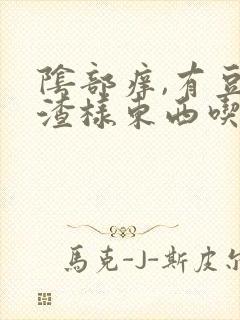 陰部痒,有豆
渣樣東西喫
馬克-J-斯皮尔